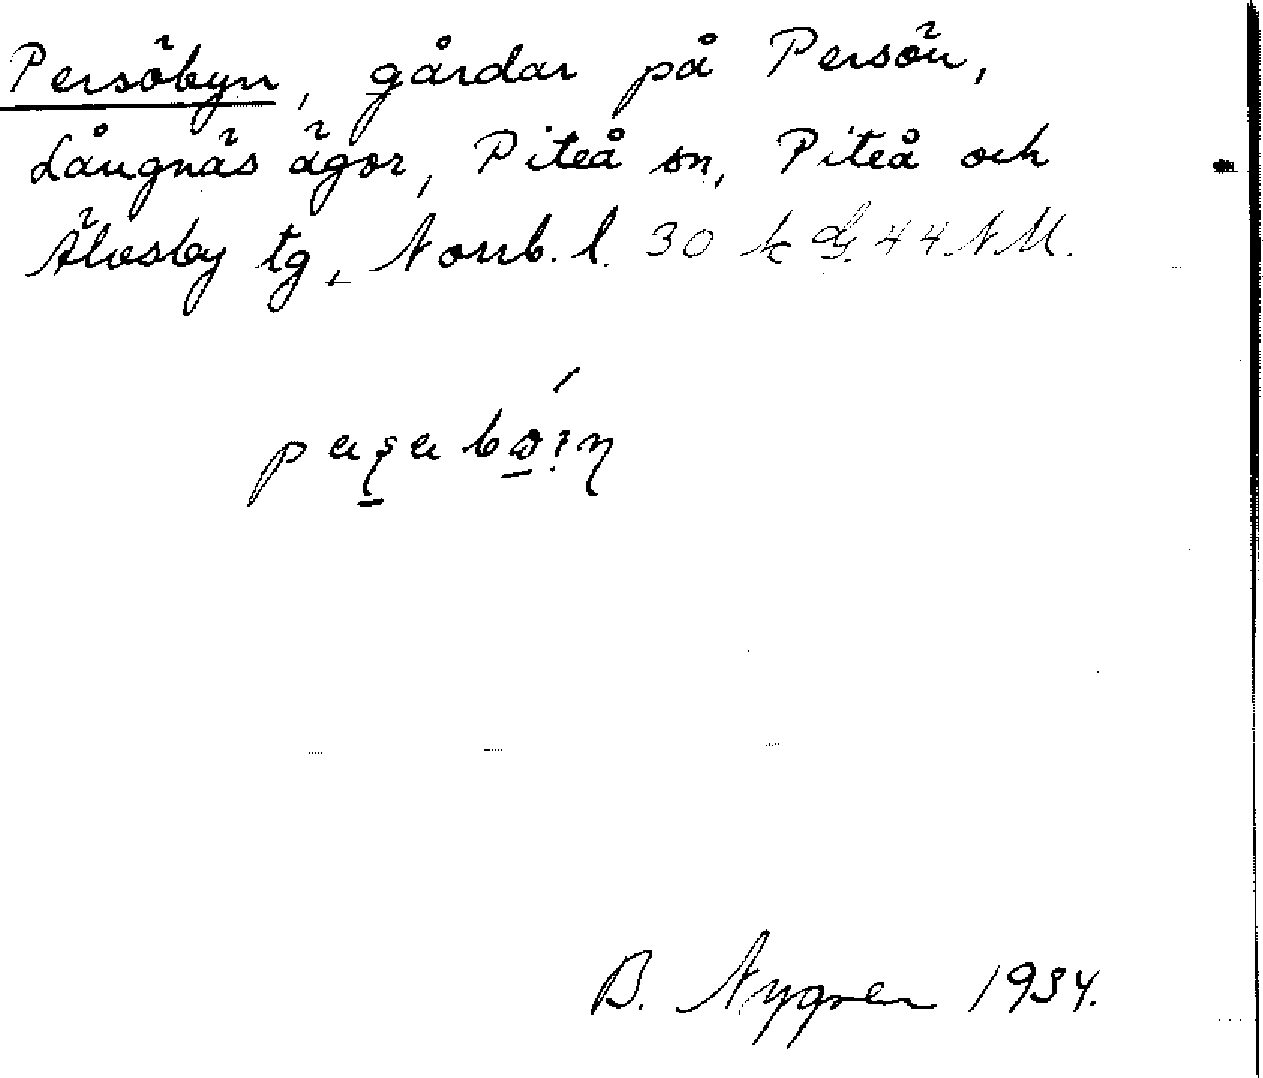 Persöbyn, gårdar på Persön,
Långnäs ägor, Piteå sn, Piteå och
Älvsby tg, Norrb. l. 30 k d. 44 N M.
B. Nygren 1934.